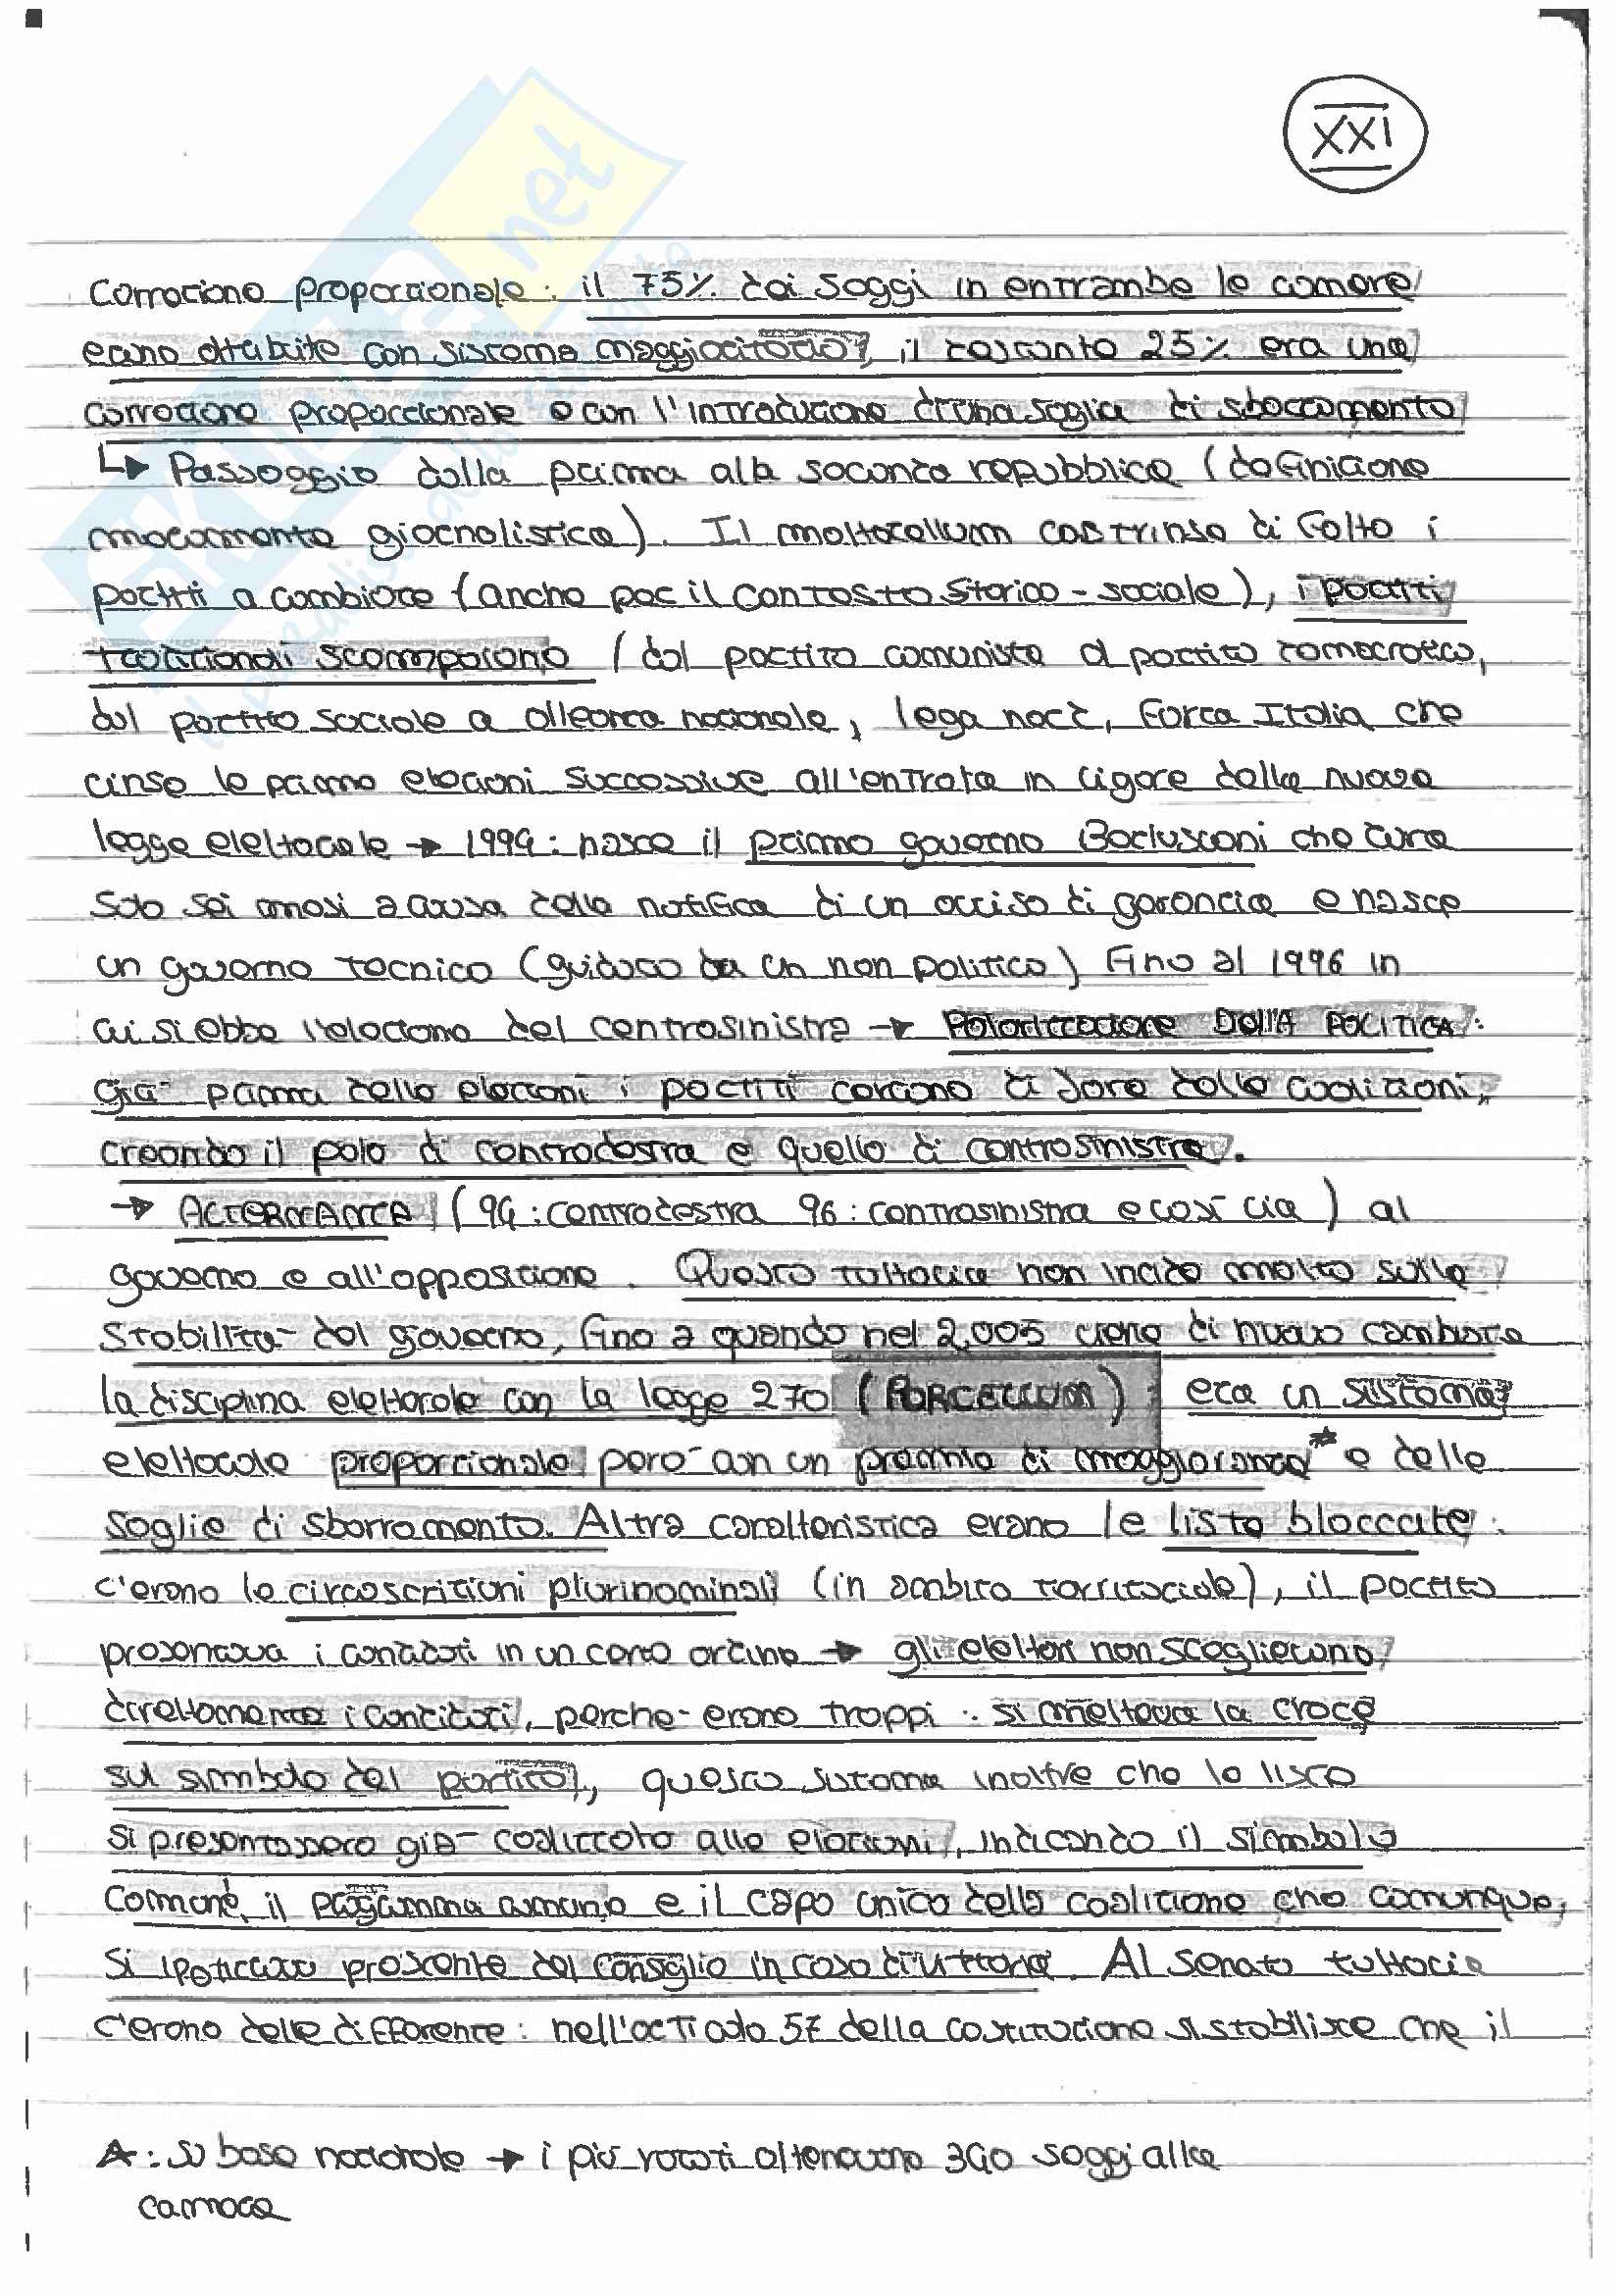 XXI
correzione proporzionale: il 75% dei seggi in entrambe le camere
erano attribuite con sistema maggioritario, il restante 25% era una
correzione proporzionale e con l'introduzione di una soglia di sbarramento
↳ Passaggio dalla prima alla seconda repubblica (definizione
meramente giornalistica). Il mattarellum costrinse di fatto i
partiti a cambiare (anche per il contesto storico-sociale), i partiti
tradizionali scompaiono (dal partito comunista al partito democratico,
dal partito sociale a alleanza nazionale, lega nord, Forza Italia che
vinse le prime elezioni successive all'entrata in vigore della nuova
legge elettorale → 1994: nasce il primo governo Berlusconi che dura
solo sei mesi a causa della notifica di un avviso di garanzia e nasce
un governo tecnico (guidato da un non politico) fino al 1996 in
cui si ebbe l'elezione del centrosinistra → POLARIZZAZIONE DELLA POLITICA:
già prima delle elezioni i partiti cercano di fare delle coalizioni,
creando il polo di centrodestra e quello di centrosinistra.
→ ALTERNANZA (94: centrodestra 96: centrosinistra e così via) al
governo e all'opposizione. Questo tuttavia non incide molto sulla
stabilità del governo, fino a quando nel 2005 viene di nuovo cambiata
la disciplina elettorale con la legge 270 (PORCELLUM): era un sistema
elettorale proporzionale però con un premio di maggioranza* e delle
soglie di sbarramento. Altra caratteristica erano le liste bloccate.
c'erano le circoscrizioni plurinominali (in ambito territoriale), il partito
presentava i candidati in un certo ordine → gli elettori non sceglievano
direttamente i candidati, perchè erano troppi: si metteva la croce
sul simbolo del partito, questo sistema inoltre che le liste
si presentassero già coalizzate alle elezioni, indicando il simbolo
comune, il programma comune e il capo unico della coalizione che comunque,
si ipotizzava presidente del Consiglio in caso di vittoria. Al Senato tuttavia
c'erano delle differenze: nell'articolo 57 della costituzione si stabilisce che il
*: su base nazionale → i più votati ottenevano 340 seggi alla
camera
skuola.net